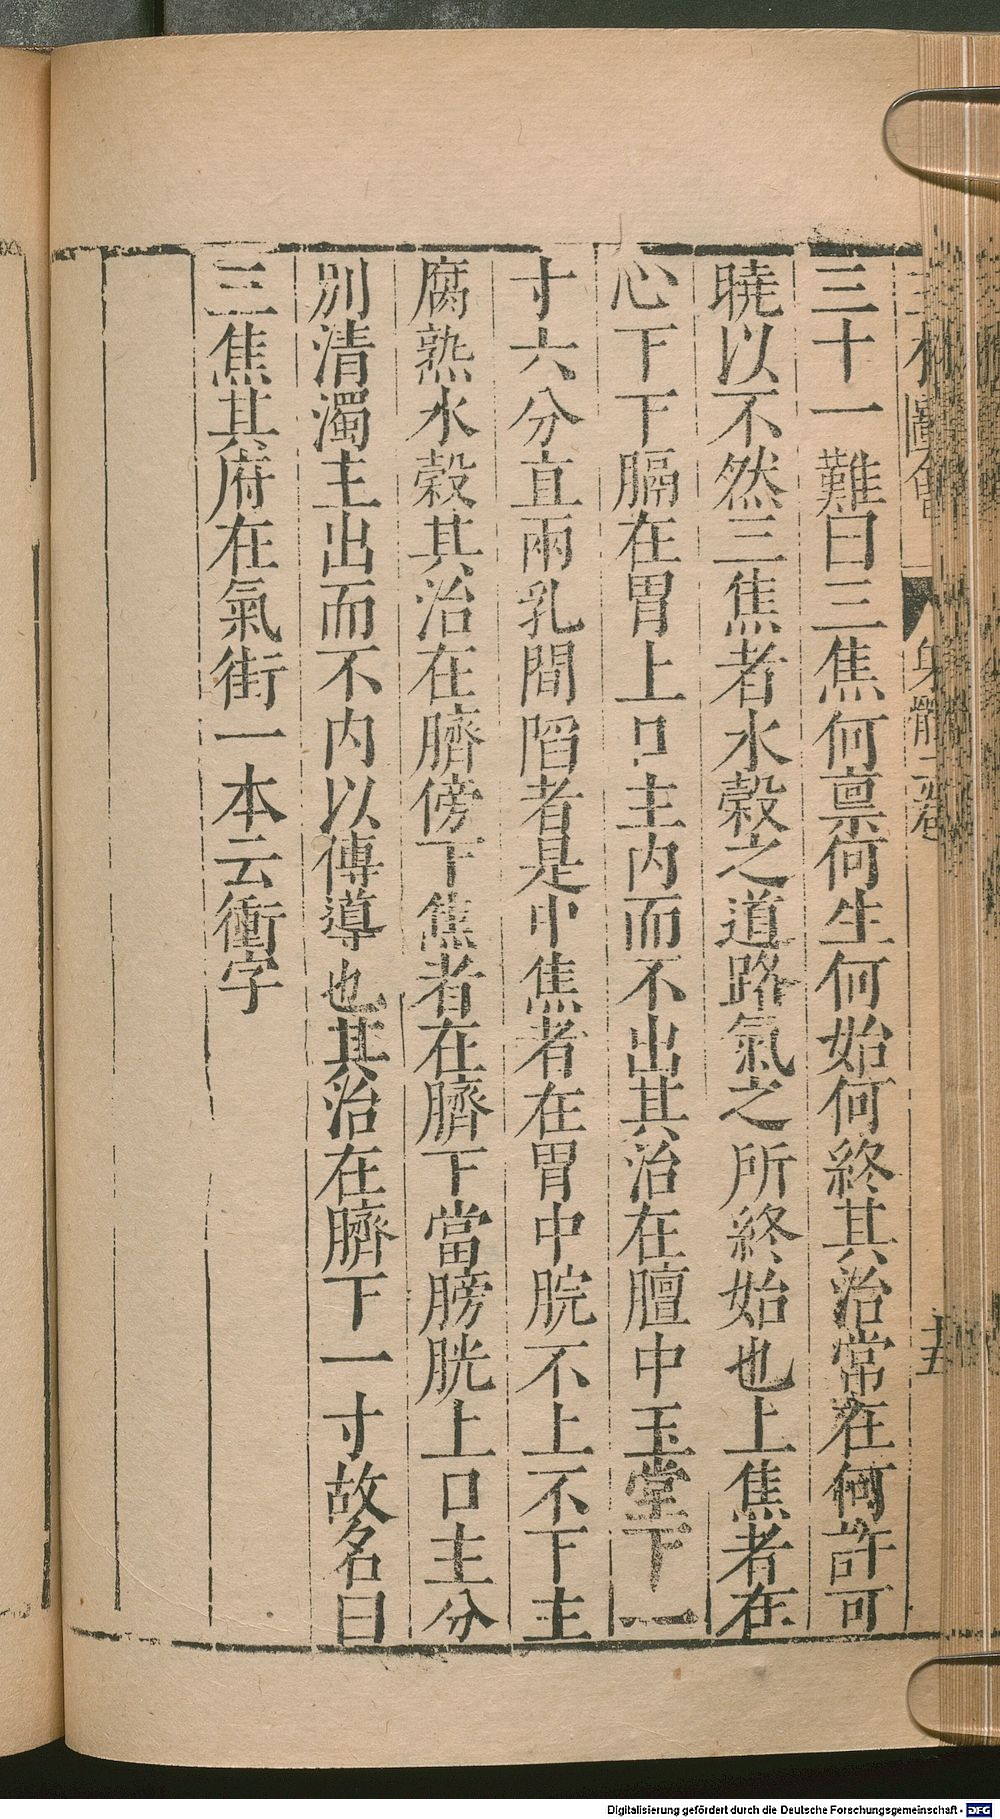 三十一難曰三焦何禀何生何始何終其治常在何許可
曉以不然三焦者水穀之道路氣之所終始也上焦者在
心下下膈在胃上口主内而不出其治在膻中玉堂下一
寸六分直兩乳間陷者是中焦者在胃中脘不上不下主
腐熟水穀其治在臍傍下焦者在臍下當膀胱上口主分
別清濁主出而不内以傳導也其治在臍下一寸故名曰
三焦其府在氣街一本云衝字
身體二卷
Digitalisierung gefördert durch die Deutsche Forschungsgemeinschaft - DFG